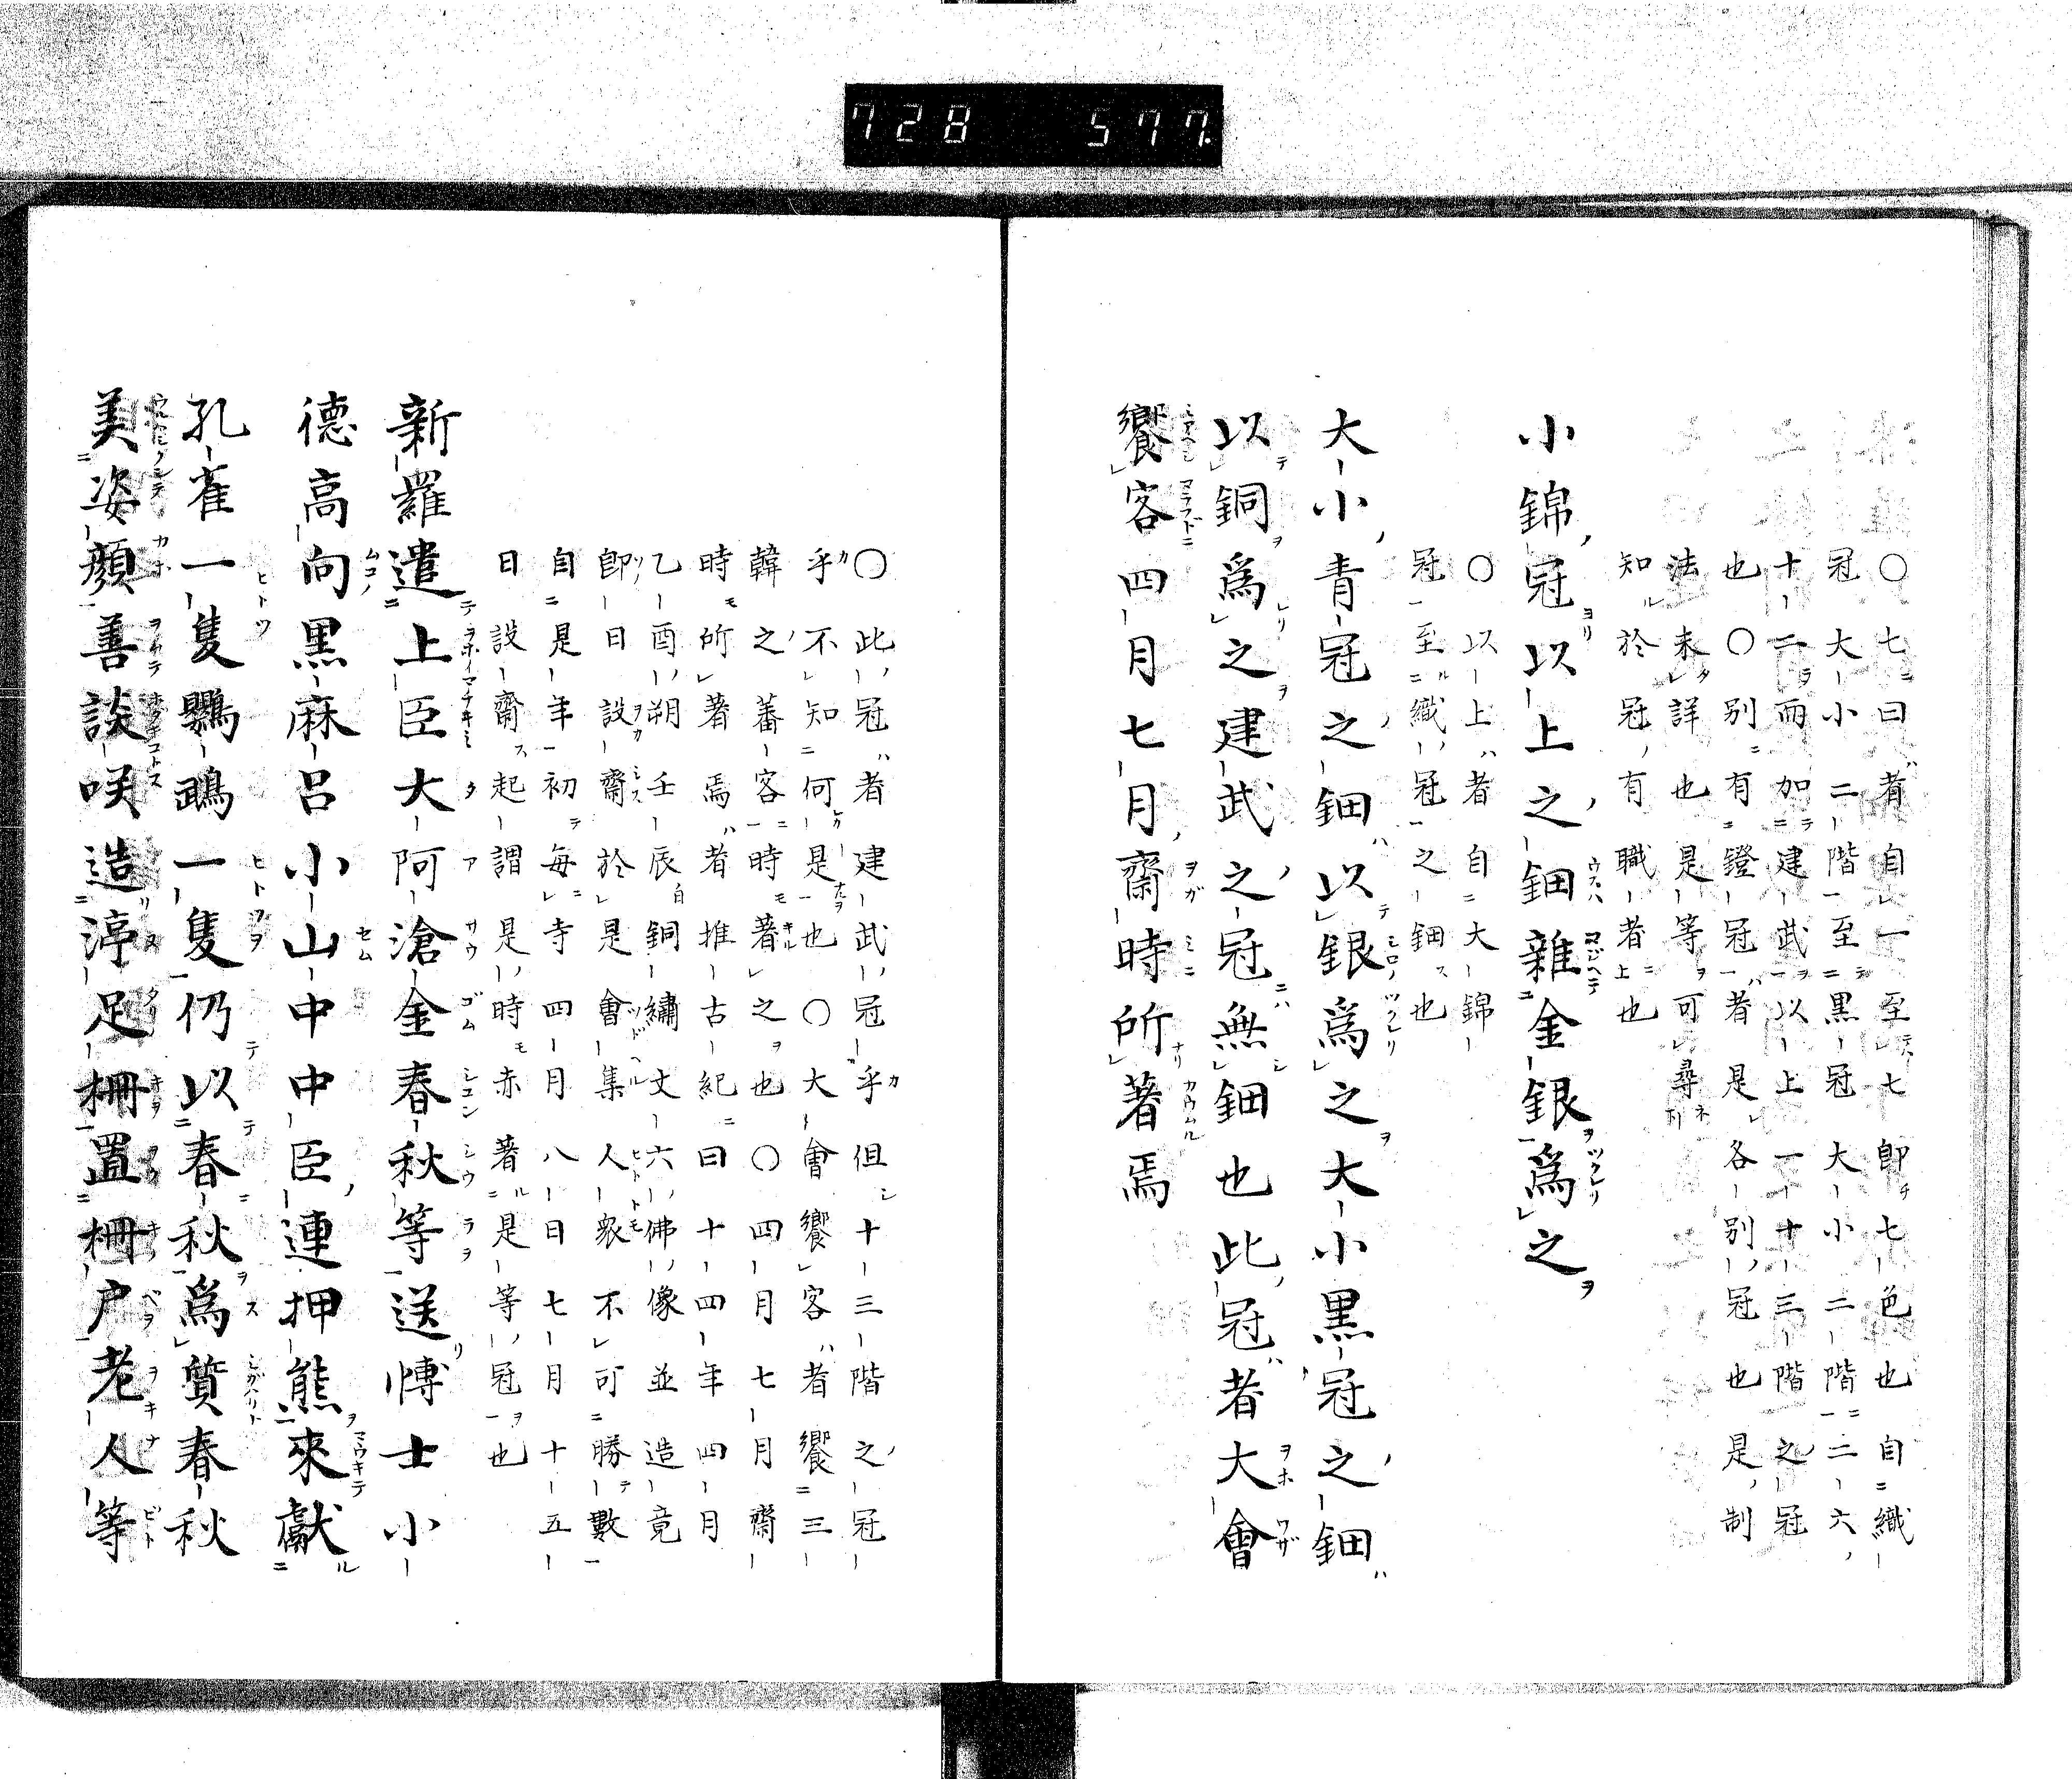 728 577
〇七曰者自一至七卽七色也自織
冠大小二階至黒冠大小二階二六
十二而加建武以上一十三階之冠
也〇別有證冠者是各別冠也是制
法未詳也是等可尋
知於冠有職者也
小錦冠以上之鈿雜金銀爲之
〇以上者自大錦
冠至織冠之鈿也
大小青冠之鈿以銀爲之大小黒冠之鈿
以銅爲之建武之冠無鈿也此冠者大會
饗客四月七月齋時所著焉
〇此冠者建武冠乎但十三階之冠
乎不知何是也〇大會饗客者饗三
韓之蕃客時著之也〇四月七月齋
時所著焉者推古紀曰十四年四月
乙酉朔壬辰銅繡丈六佛像並造竟
卽日設齋於是會集人衆不可勝數
自是年初每寺四月八日七月十五
日設齋起謂是時赤著是等冠也
新羅遣上臣大阿滄金春秋等送博士小
德高向黒麻呂小山中中臣連押熊來獻
孔雀一隻鸚鵡一隻仍以春秋爲質春秋
美姿顏善談咲造渟足柵置柵戸老人等